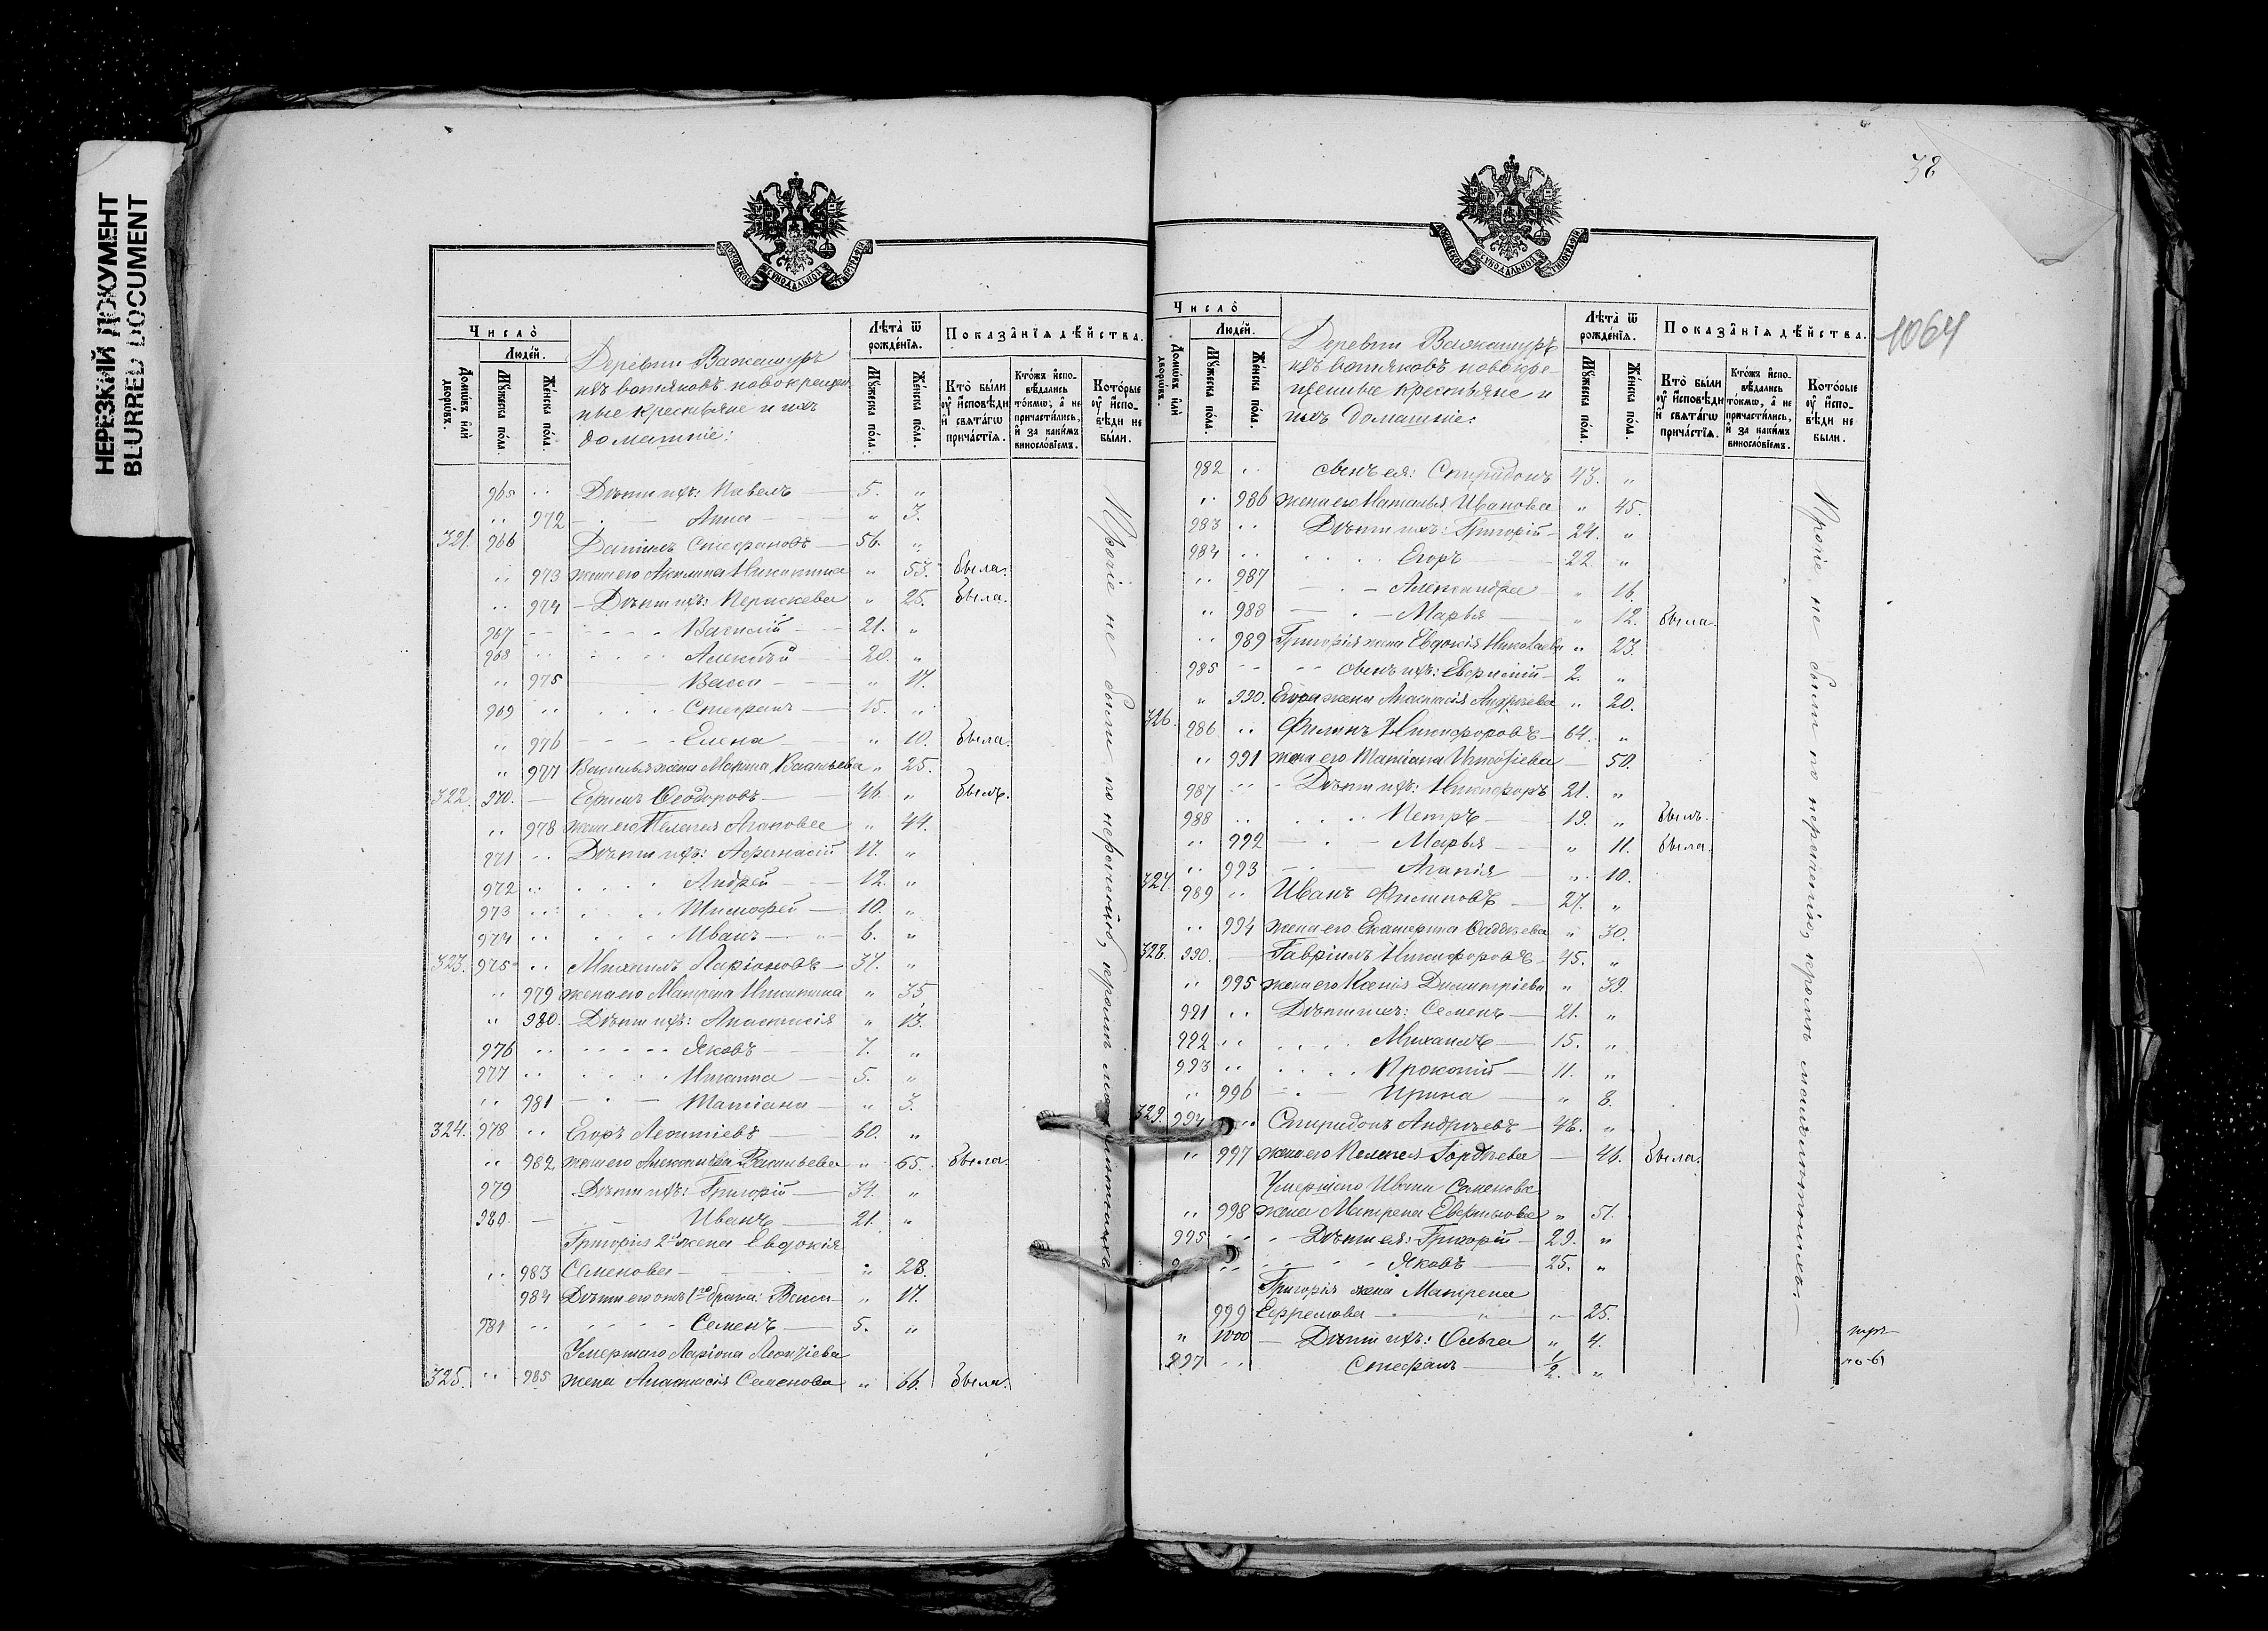 НЕРЕЗКИЙ ДОКУМЕНТ
BLURRED DOCUMENT
МОСКОВСКОЙ СѴНОДАЛЬНОЙ ТИПОГРАФІИ
Число̀
Людѐй.
Домѡвъ или дворѡвъ.
Мꙋжеска пола.
Женска пола.
Деревни Важашуръ
изъ вотяковъ новокрещен-
ные крестьяне и ихъ
домашніе:
Лѣта ѿ рожденїѧ.
Мꙋжеска пола.
Женска пола.
Показанїѧ дѣйства.
Кто были ᲂу҆ исповѣди и свѧтагѡ причастїѧ.
Ктожъ исповѣдались токмѡ, а не причастились, и за какимъ винословїемъ.
Которые ᲂу҆ исповѣди не были.
965 " Дѣти ихъ: Павелъ 5. "
" 972 Анна " 3.
321. 966 Даніилъ Стефановъ 56. "
" 973 жена его Акилина Никитина " 53. была.
" 974 Дѣти ихъ: Параскева " 25. была.
967 " Василій 21. "
968 " Алексѣй 20. "
" 975 Васса " 17.
969 " Стефанъ 15. "
" 976 Елена " 10. была.
" 977 Василья жена Марина Васильева " 25.
322. 970. Ефимъ Ѳеодоровъ 46. " былъ.
" 978 жена его Пелагея Агапова " 44.
971 " Дѣти ихъ: Афанасій 17. "
972 " Андрей 12. "
973 " Тимофей 10. "
974 " Иванъ 6. "
323. 975 " Михаилъ Ларіоновъ 37. "
" 979 жена его Матрена Никитина " 35
" 980. Дѣти ихъ: Анастасія " 13.
976 " Яковъ 7. "
977 " Никита 5. "
" 981 Татіана " 3.
324. 978 " Егоръ Леонтіевъ 60. "
" 982 жена его Александра Васильева " 65. была.
979 Дѣти ихъ: Григорій 34. "
980 Иванъ 21. "
Григорія 2я жена Евдокія
" 983 Семенова " 28.
984 Дѣти его отъ 1го брака: Васса " 17.
981 " Семенъ 5. "
Умершаго Ларіона Леонтіева
325. " 985 жена Анастасія Семенова " 66. была.
Прочіе не были по нерачению, кромѣ малолѣтнихъ
38
1064
МОСКОВСКОЙ СѴНОДАЛЬНОЙ ТИПОГРАФІИ
Число̀
Людей.
Домѡвъ или дворѡвъ.
Мꙋжеска пола.
Женска пола.
Деревни Важашуръ
изъ вотяковъ новокре-
щенные крестьяне и
ихъ домашніе:
Лѣта ѿ рожденїѧ.
Мꙋжеска пола.
Женска пола.
Показанїѧ дѣйства.
Кто были ᲂу҆ исповѣди и свѧтагѡ причастїѧ.
Ктожъ исповѣдались токмѡ, а не причастились, и за какимъ винословїемъ.
Которые ᲂу҆ исповѣди не были.
982 " сынъ ея: Спиридонъ 43. "
" 986 жена его Наталья Иванова " 45.
983 " Дѣти ихъ: Григорій 24. "
984 " Егоръ 22. "
" 987 Александра " 16.
" 988 Марья " 12. была.
" 989 Григорія жена Евдокія Николаева " 23.
985 " сынъ ихъ: 2. "
" 990. Егора жена Анастасія Андреева " 20.
326. 986 " Филипъ Никифоровъ 64. "
" 991 жена его Татіана Тимофіева 50.
987 " Дѣти ихъ: Никифоръ 21. "
988 " Петръ 19. " былъ.
" 992 Марья " 11. была.
" 993 Агапія " 10.
327. 989 " Иванъ Филиповъ 27. "
" 994 жена его Екатерина Фадѣева " 30.
328. 990. Гавріилъ Никифоровъ 45. "
" 995 жена его Ксенія Димитріева " 39.
991 " Дѣти ихъ: Семенъ 21. "
992 " Михаилъ 15. "
993 " Прокопій 11. "
" 996 Ирина " 8.
329. 994 " Спиридонъ Андреевъ 48. "
" 997 жена его Пелагея Гордѣева 46. была.
Умершаго Ивана Семенова
" 998 жена Матрена " 51.
995 " Дѣти ея: Григорій 29. "
Яковъ 25. "
Григорія жена Матрена
999 Ефремова " 25.
" 1000 Дѣти ихъ: Ольга " 4.
997 " Стефанъ 1/2. "
Прочіе не были по нерачению, кромѣ малолѣтнихъ.